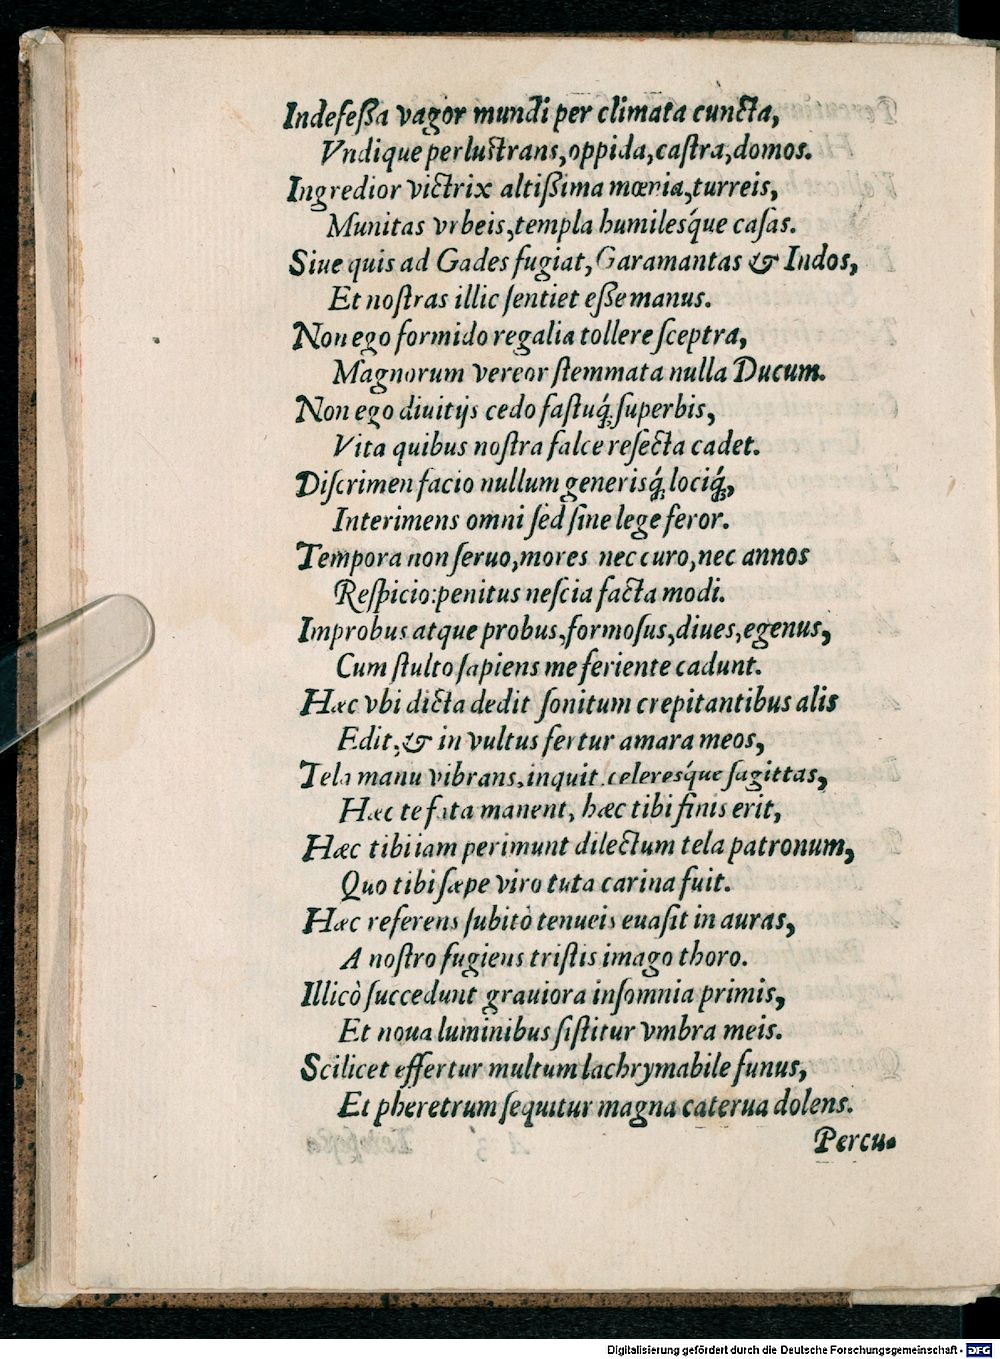 Indefeßa vagor mundi per climata cuncta,
Vndique perlustrans, oppida, castra, domos.
Ingredior victrix altißima mœnia, turreis,
Munitas vrbeis, templa humilesq́ue casas.
Siue quis ad Gades fugiat, Garamantas & Indos,
Et nostras illic sentiet eße manus.
Non ego formido regalia tollere sceptra,
Magnorum vereor stemmata nulla Ducum.
Non ego diuitijs cedo fastuq́; superbis,
Vita quibus nostra falce resecta cadet.
Discrimen facio nullum generisq́; lociq́;,
Interimens omni sed sine lege feror.
Tempora non seruo, mores nec curo, nec annos
Respicio: penitus nescia facta modi.
Improbus atque probus, formosus, diues, egenus,
Cum stulto sapiens me feriente cadunt.
Hæc vbi dicta dedit sonitum crepitantibus alis
Edit, & in vultus fertur amara meos,
Tela manu vibrans, inquit, celeresq́ue sagittas,
Hæc te fata manent, hæc tibi finis erit,
Hæc tibi iam perimunt dilectum tela patronum,
Quo tibi sæpe viro tuta carina fuit.
Hæc referens subitò tenueis euasit in auras,
A nostro fugiens tristis imago thoro.
Illicò succedunt grauiora insomnia primis,
Et noua luminibus sistitur vmbra meis.
Scilicet effertur multum lachrymabile funus,
Et pheretrum sequitur magna caterua dolens.
Percu-
Digitalisierung gefördert durch die Deutsche Forschungsgemeinschaft - DFG